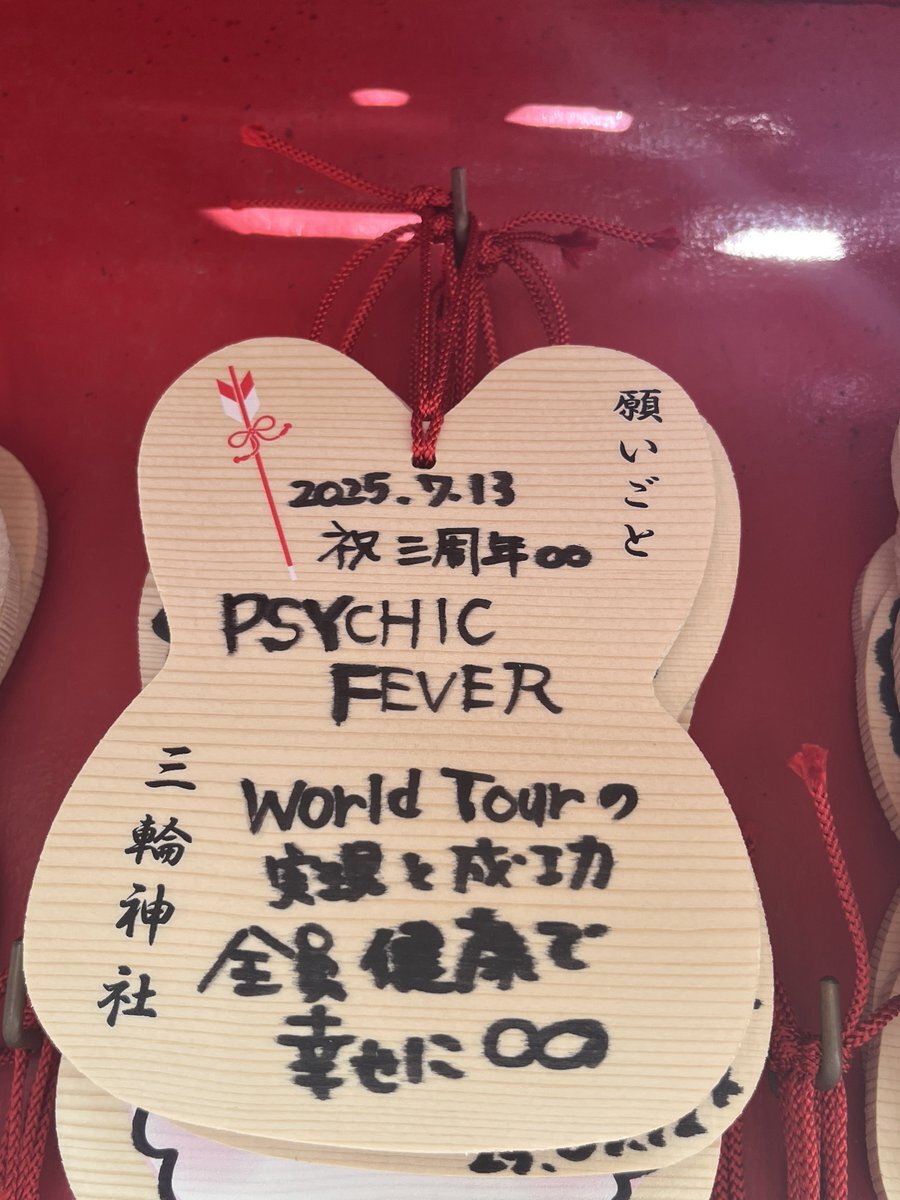 願いごと
2025.7.13
祝 三周年∞
PSYCHIC
FEVER
World Tourの
実現と成功
全員健康で
幸せに∞
三輪神社